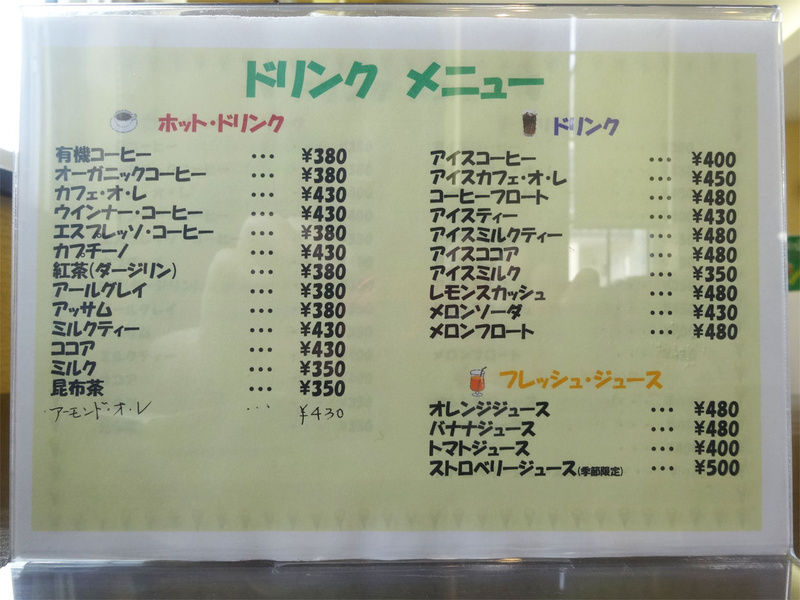 ドリンク メニュー
ホット・ドリンク
有機コーヒー … ¥380
オーガニックコーヒー … ¥380
カフェ・オ・レ … ¥430
ウインナー・コーヒー … ¥430
エスプレッソ・コーヒー … ¥380
カプチーノ … ¥430
紅茶(ダージリン) … ¥380
アールグレイ … ¥380
アッサム … ¥380
ミルクティー … ¥430
ココア … ¥430
ミルク … ¥350
昆布茶 … ¥350
アーモンド・オ・レ … ¥430
ドリンク
アイスコーヒー … ¥400
アイスカフェ・オ・レ … ¥450
コーヒーフロート … ¥480
アイスティー … ¥430
アイスミルクティー … ¥480
アイスココア … ¥480
アイスミルク … ¥350
レモンスカッシュ … ¥480
メロンソーダ … ¥430
メロンフロート … ¥480
フレッシュ・ジュース
オレンジジュース … ¥480
バナナジュース … ¥480
トマトジュース … ¥400
ストロベリージュース(季節限定) … ¥500